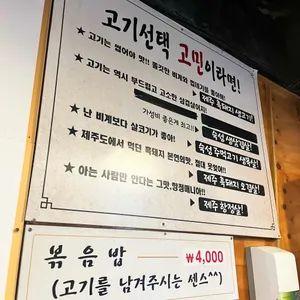 고기선택 고민이라면!
★고기는 씹어야 맛!! 쫄깃한 비계와 껍데기를 좋아해!
제주 흑돼지 생고기!
★고기는 역시 부드럽고 고소한 삼겹살이지!
가성비 좋은게 최고!!
숙성 생삼겹살!
★난 비계보다 살코기가 좋아!
숙성 주먹고기 생목살!
★제주도에서 먹던 흑돼지 본연의맛, 절대 못잊어!!
제주 흑돼지 오겹살!
★아는 사람만 안다는 그맛, 항정매니아!!
제주 항정살!
볶음밥 ₩4,000
(고기를 남겨주시는 센스^^)